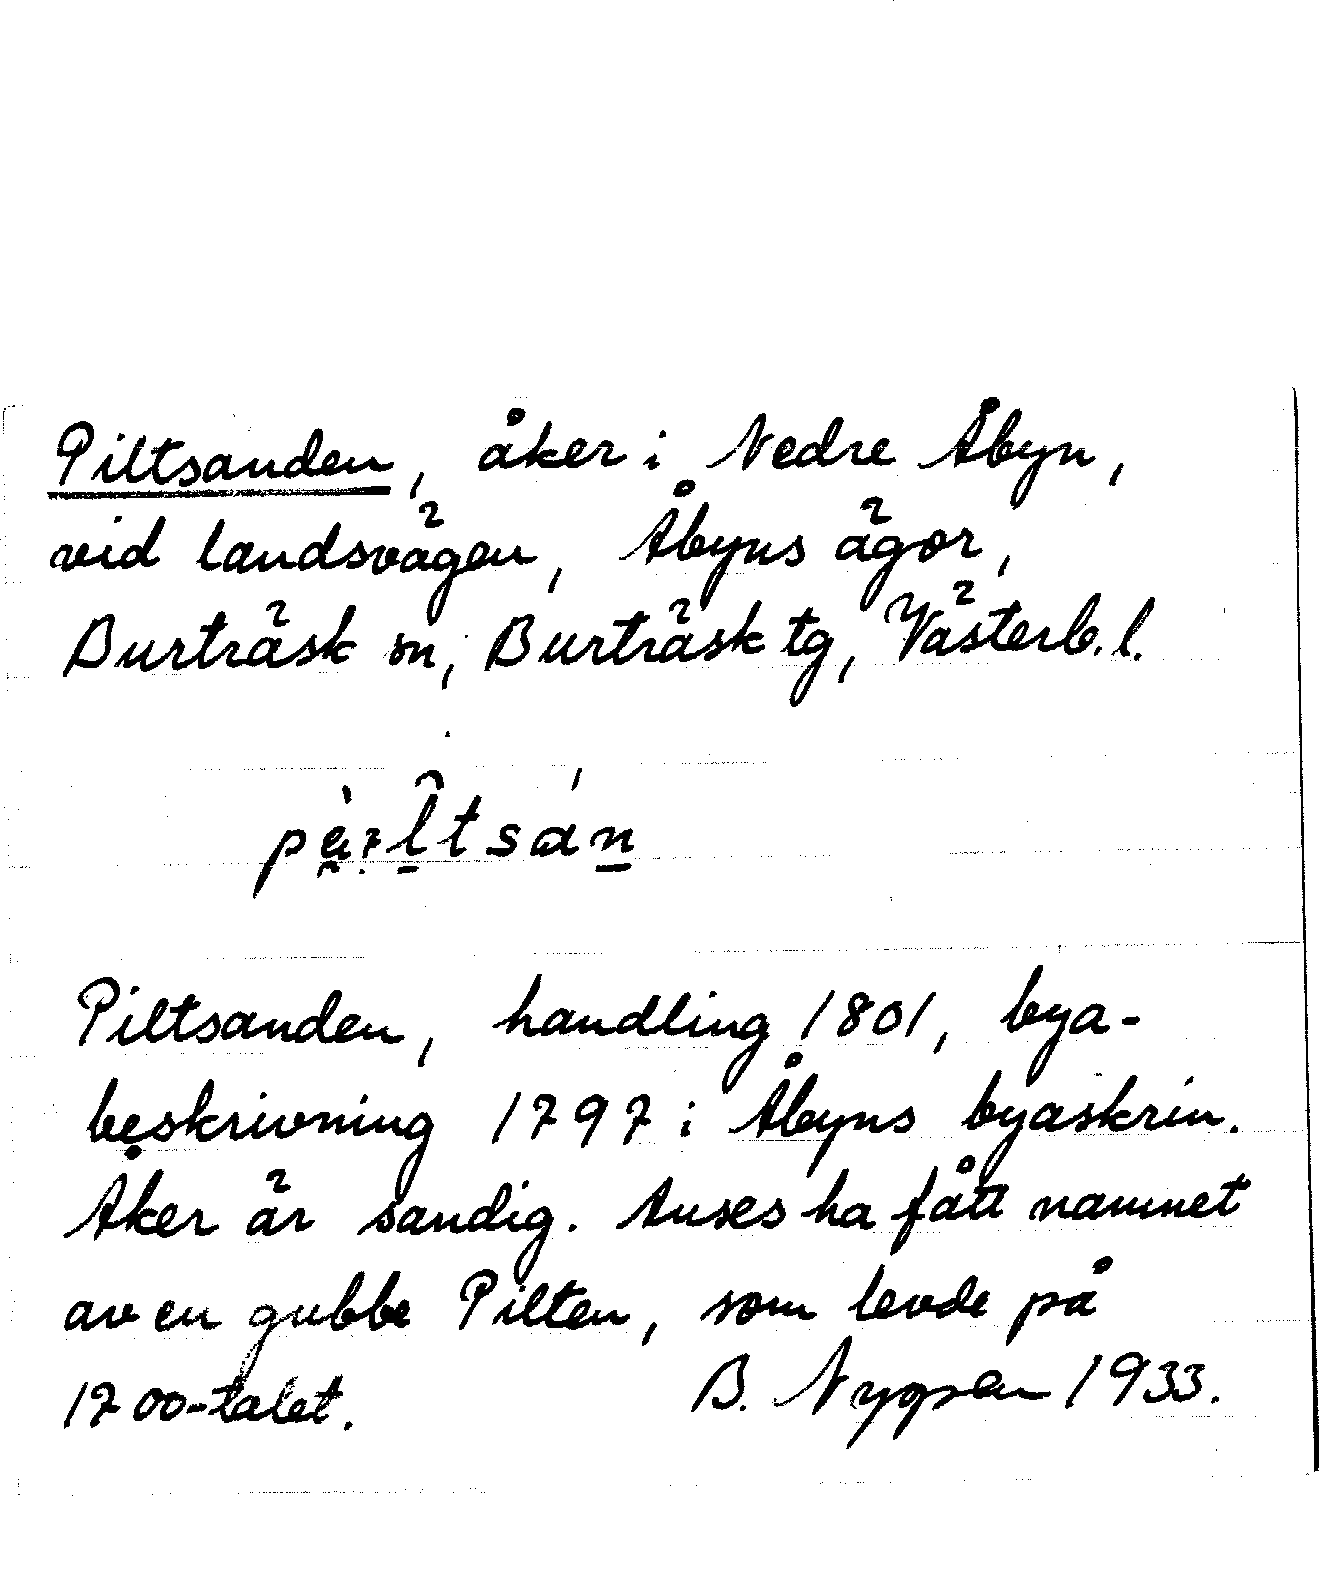 Piltsanden, åker i Nedre Åbyn,
vid landsvägen, Åbyns ägor,
Burträsk sn, Burträsk tg, Västerb. l.
Piltsanden, handling 1801, bya-
beskrivning 1797 i Åbyns byaskrin.
Åker är sandig. Anses ha fått namnet
av en gubbe Pilten, som levde på
1700-talet. B. 1933.